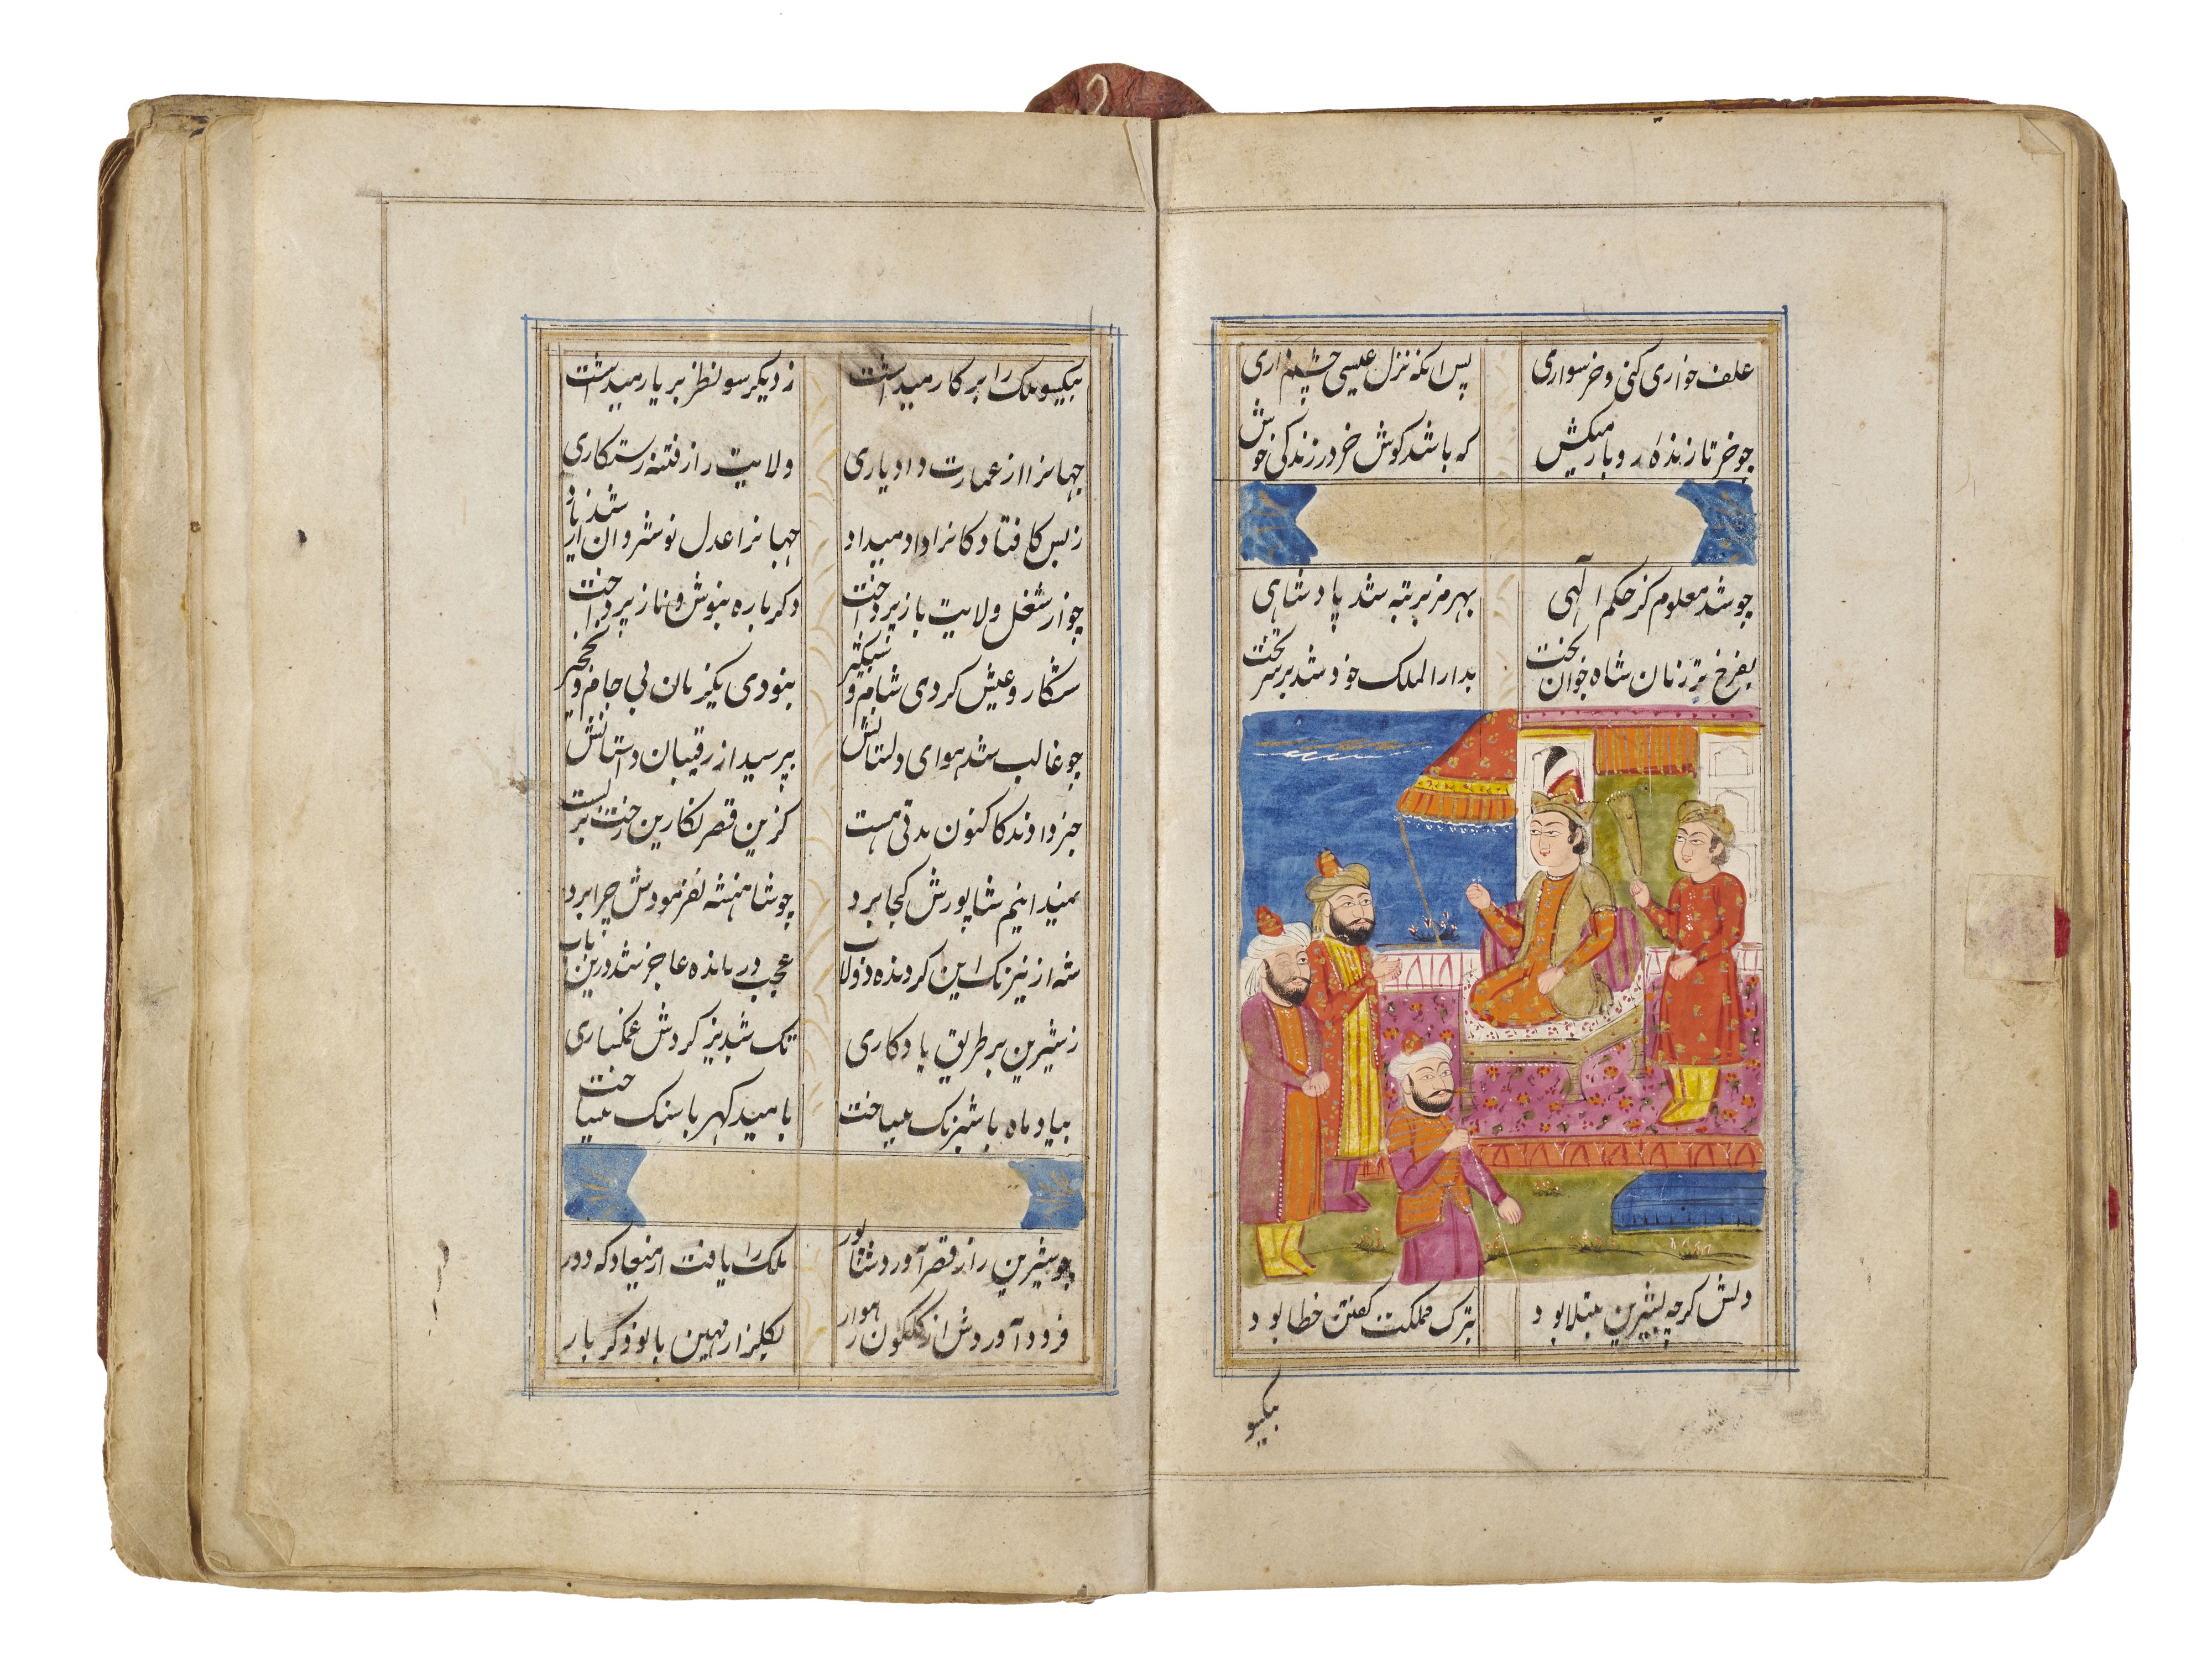 علف خواری کنی و خر سواری پس آنکه نزل عیسی چشم داری
چو خر تا زنده رو بار میکش که باشد کوش خر در زندکی خوش
چو شد معلوم کز حکم الهی بهرمز بر تبه شد پادشاهی
بفرخ تر زمان شاه جوان بخت بدار الملک خود شد بر سر تخت
دلش کرچه بشیرین مبتلا بود بترک مملکت کفتن خطا بود
بیکسو
بیکسو ملک را بر کار میداشت ز دیکر سو نظر بر یار میداشت
جهانرا از عمارت داد یاری ولایت را ز فتنه رستکاری
ز بس کافتادکانرا داد میداد جهانرا عدل نوشروان شد از یاد
چو از شغل ولایت باز پرداخت دکر باره بنوش و ناز پرداخت
شکار و عیش کردی شام و شبکیر نبودی یکزمان بی جام و نخجیر
چو غالب شد هوای دلستانش بپرسید از رقیبان داستانش
خبر دادند کاکنون مدتی هست کزین قصر نکارین رخت بربست
نمیدانیم شاپورش کجا برد چو شاهنشه نفرمودش چرا برد
شه از نیرنک این کردنده دولاب عجب در مانده عاجز شد درین باب
ز شیرین بر طریق یادکاری تک شبدیز کردش غمکساری
بیاد ماه با شبرنک میساخت بامید کهر با سنک میساخت
چو شیرین را ز قصر آورد شاپور ملک را یافت از میعاد که دور
فرود آوردش از کلکون رهوار بکلزار مهین بانو دکر بار